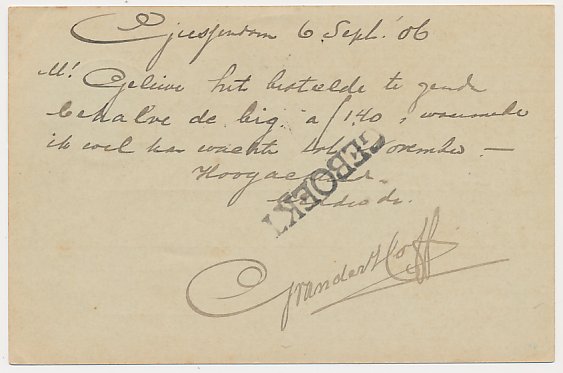 6 Sept. '06
Mr. Gelieve het bestelde te zenden
behalve de big. a f 1.40, waarmede
ik wel kan wachten tot November. —
Hoogachtend
GEBOEKT
C van der Hoff